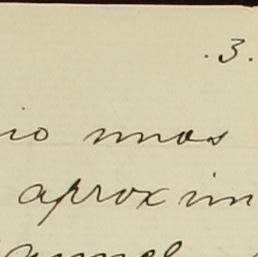 .3.
io unos
aproxim